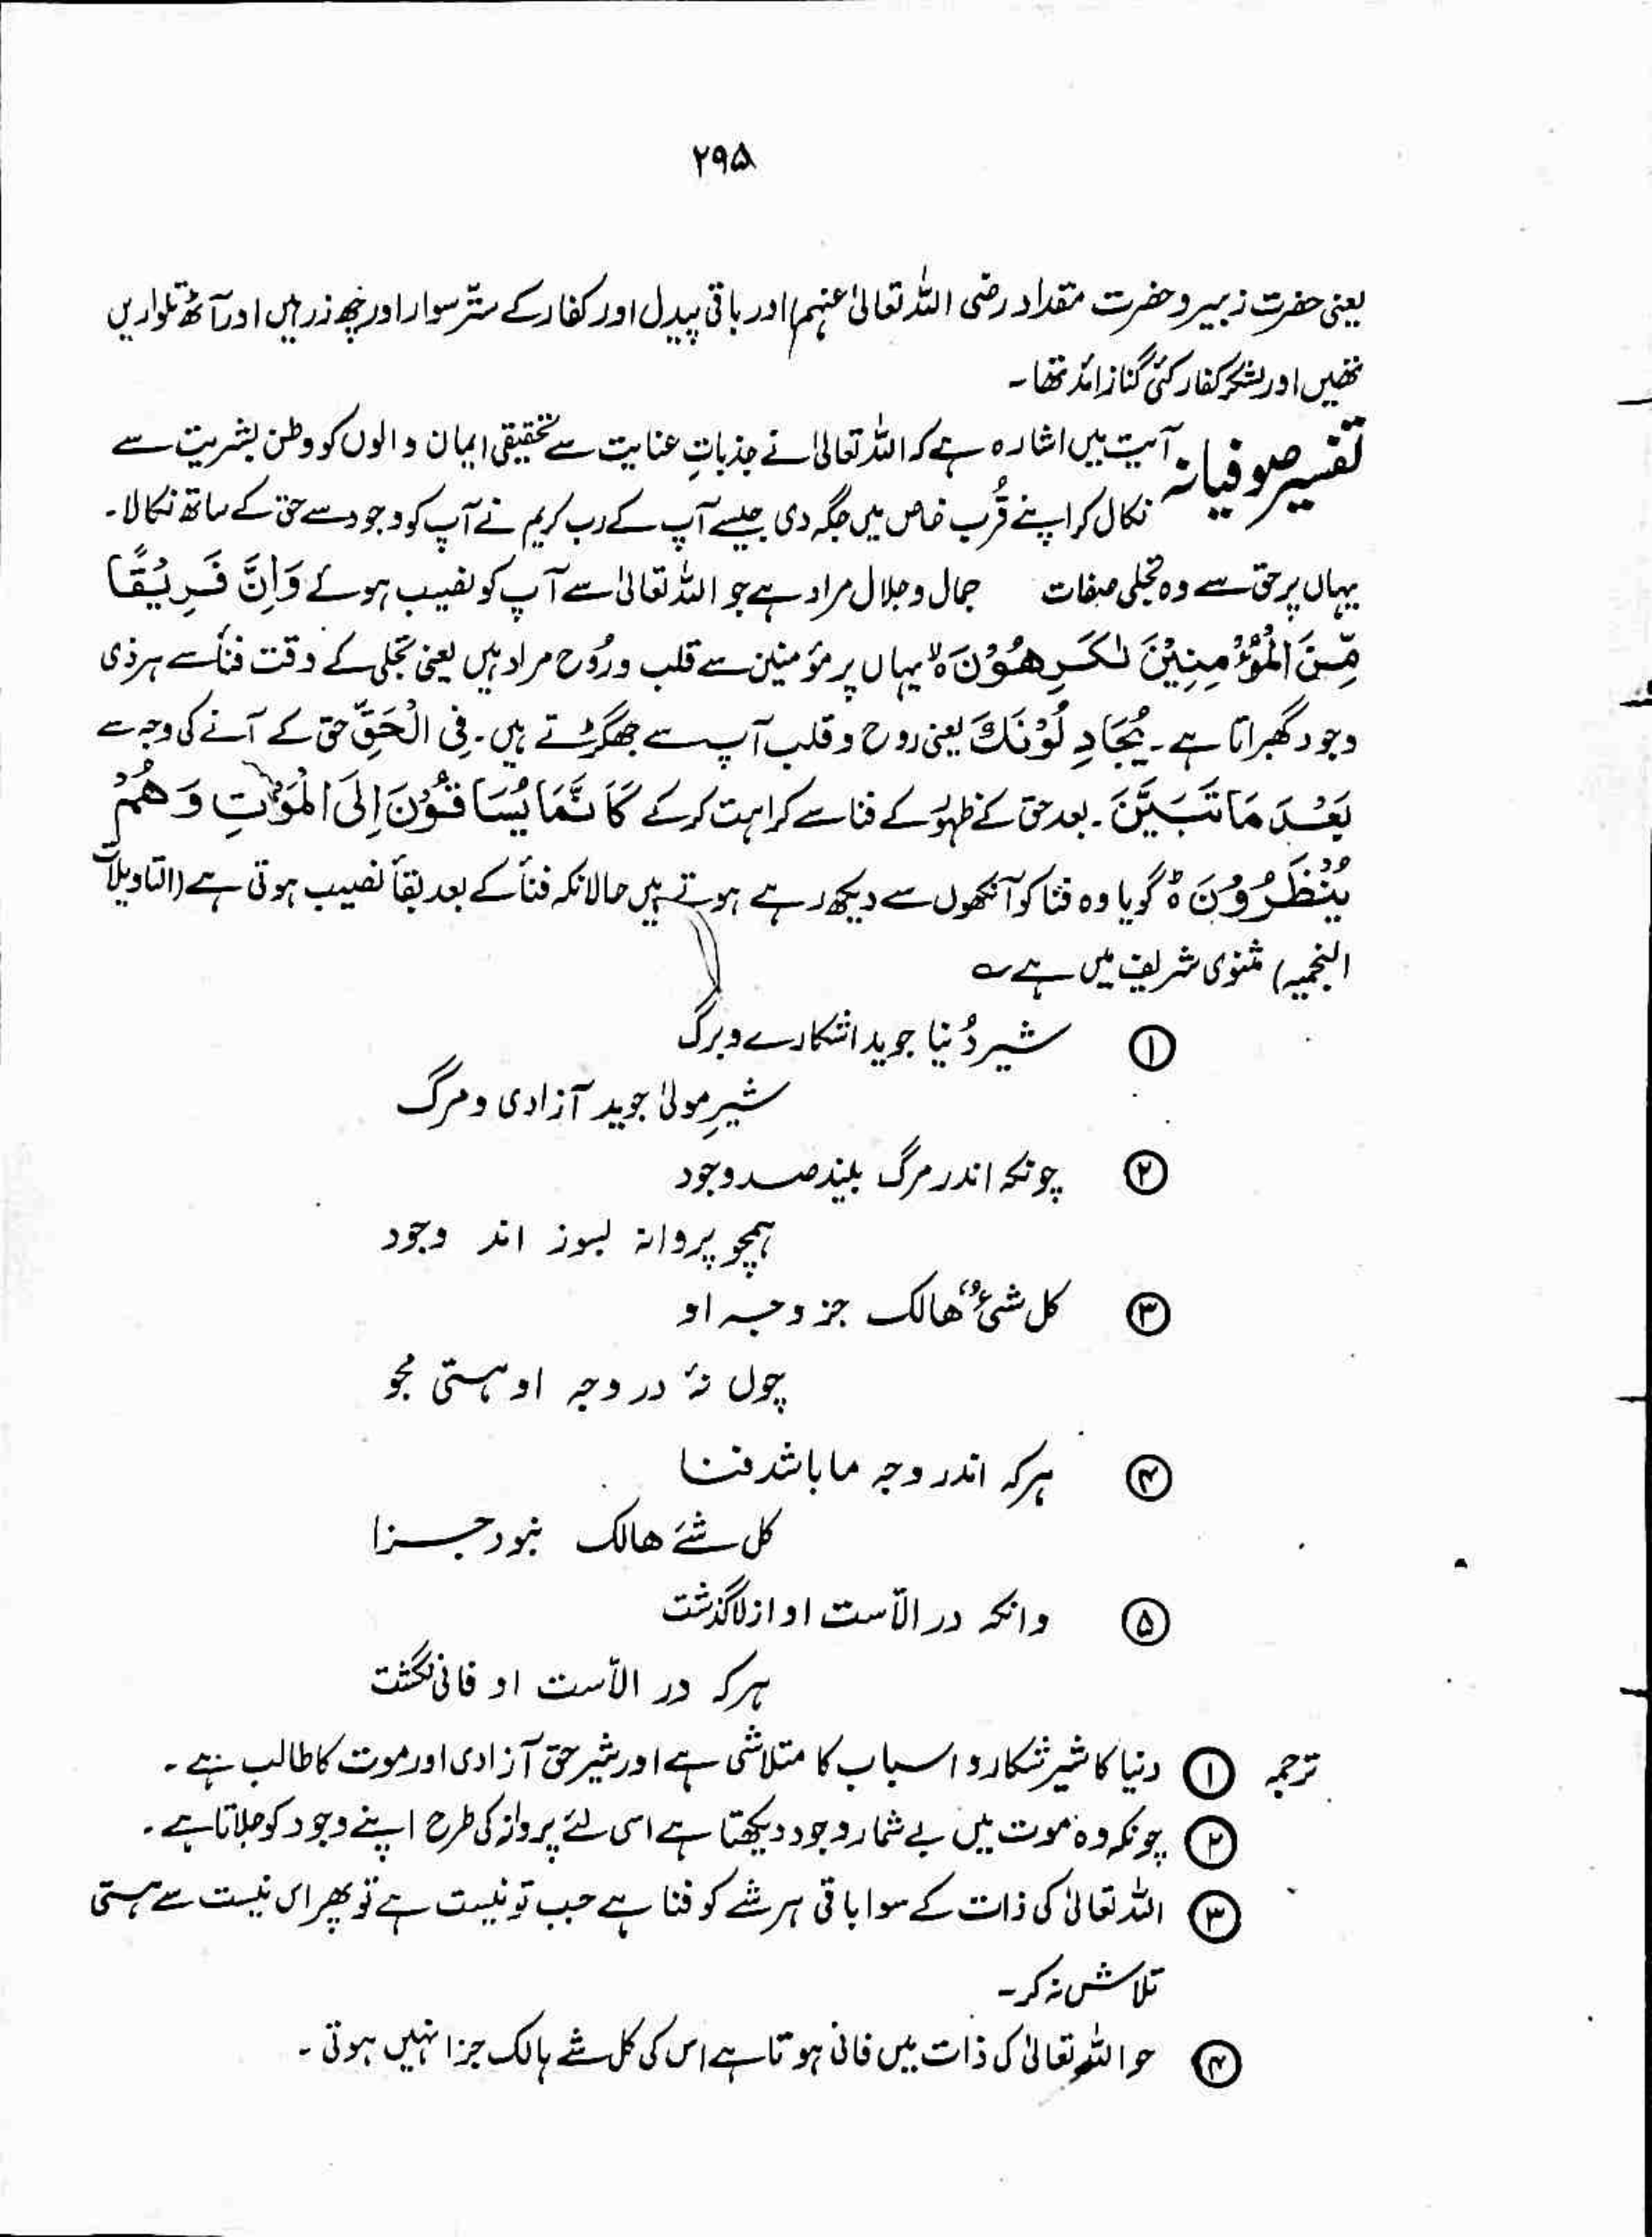 ۲۹۵
یعنی حضرت زبیر و حضرت مقداد رضی اللہ تعالیٰ عنہم اور باقی پیدل اور کفار کے ستّر سوار اور چھ زرہیں اور آٹھ تلواریں
تھیں اور لشکر کفار کئی گنا زائد تھا۔
تفسیر صوفیانہ آیت میں اشارہ ہے کہ اللہ تعالیٰ نے جذباتِ عنایت سے تحقیقی ایمان والوں کو وطن بشریت سے
نکال کر اپنے قُرب خاص میں جگہ دی جیسے آپ کے رب کریم نے آپ کو وجود سے حق کے ساتھ نکالا۔
یہاں پر حق سے وہ تجلی صفات جمال و جلال مراد ہے جو اللہ تعالیٰ سے آپ کو نصیب ہوئے وَاِنَّ فَرِیْقًا
مِّنَ الْمُؤْمِنِیْنَ لَکٰرِھُوْنَ ہ لا یہاں پر مؤمنین سے قلب و رُوح مراد ہیں یعنی تجلی کے وقت فنأ سے ہر ذی
وجود گھبراتا ہے۔ یُجَادِلُوْنَکَ یعنی روح و قلب آپ سے جھگڑتے ہیں۔ فِی الْحَقِّ حق کے آنے کی وجہ سے
بَعْدَ مَا تَبَیَّنَ۔ بعد حق کے ظہور کے فنا سے کراہت کرکے کَاَنَّمَا یُسَاقُوْنَ اِلَی الْمَوْتِ وَھُمْ
یَنْظُرُوْنَ ہ ط گویا وہ فنا کو آنکھوں سے دیکھ رہے ہوتے ہیں حالانکہ فنأ کے بعد بقأ نصیب ہوتی ہے (التاویلات
النجمیہ) مثنوی شریف میں ہے ؎
① شیر دُنیا جوید اشکارے و برگ
شیرِ مولیٰ جوید آزادی و مرگ
② چونکہ اندر مرگ بیند صد وجود
ہمچو پروانہ بسوز اند وجود
③ کل شیٔ ھالک جز وجہ او
چوں نۂ در وجہ او ہستی مجو
④ ہر کہ اندر وجہ ما باشد فنا
کل شئے ھالک نبود جزا
⑤ وانکہ در الّاست او از لا گذشت
ہر کہ در الّاست او فانی نگشت
ترجمہ ① دنیا کا شیر شکار و اسباب کا متلاشی ہے اور شیر حق آزادی اور موت کا طالب ہے۔
② چونکہ وہ موت میں بے شمار وجود دیکھتا ہے اسی لئے پروانہ کی طرح اپنے وجود کو جلاتا ہے۔
③ اللہ تعالیٰ کی ذات کے سوا باقی ہر شے کو فنا ہے جب تو نیست ہے تو پھر اس نیست سے ہستی
تلاش نہ کر۔
④ جو اللہ تعالیٰ کی ذات میں فانی ہوتا ہے اس کی کل شے ہالک جزا نہیں ہوتی۔